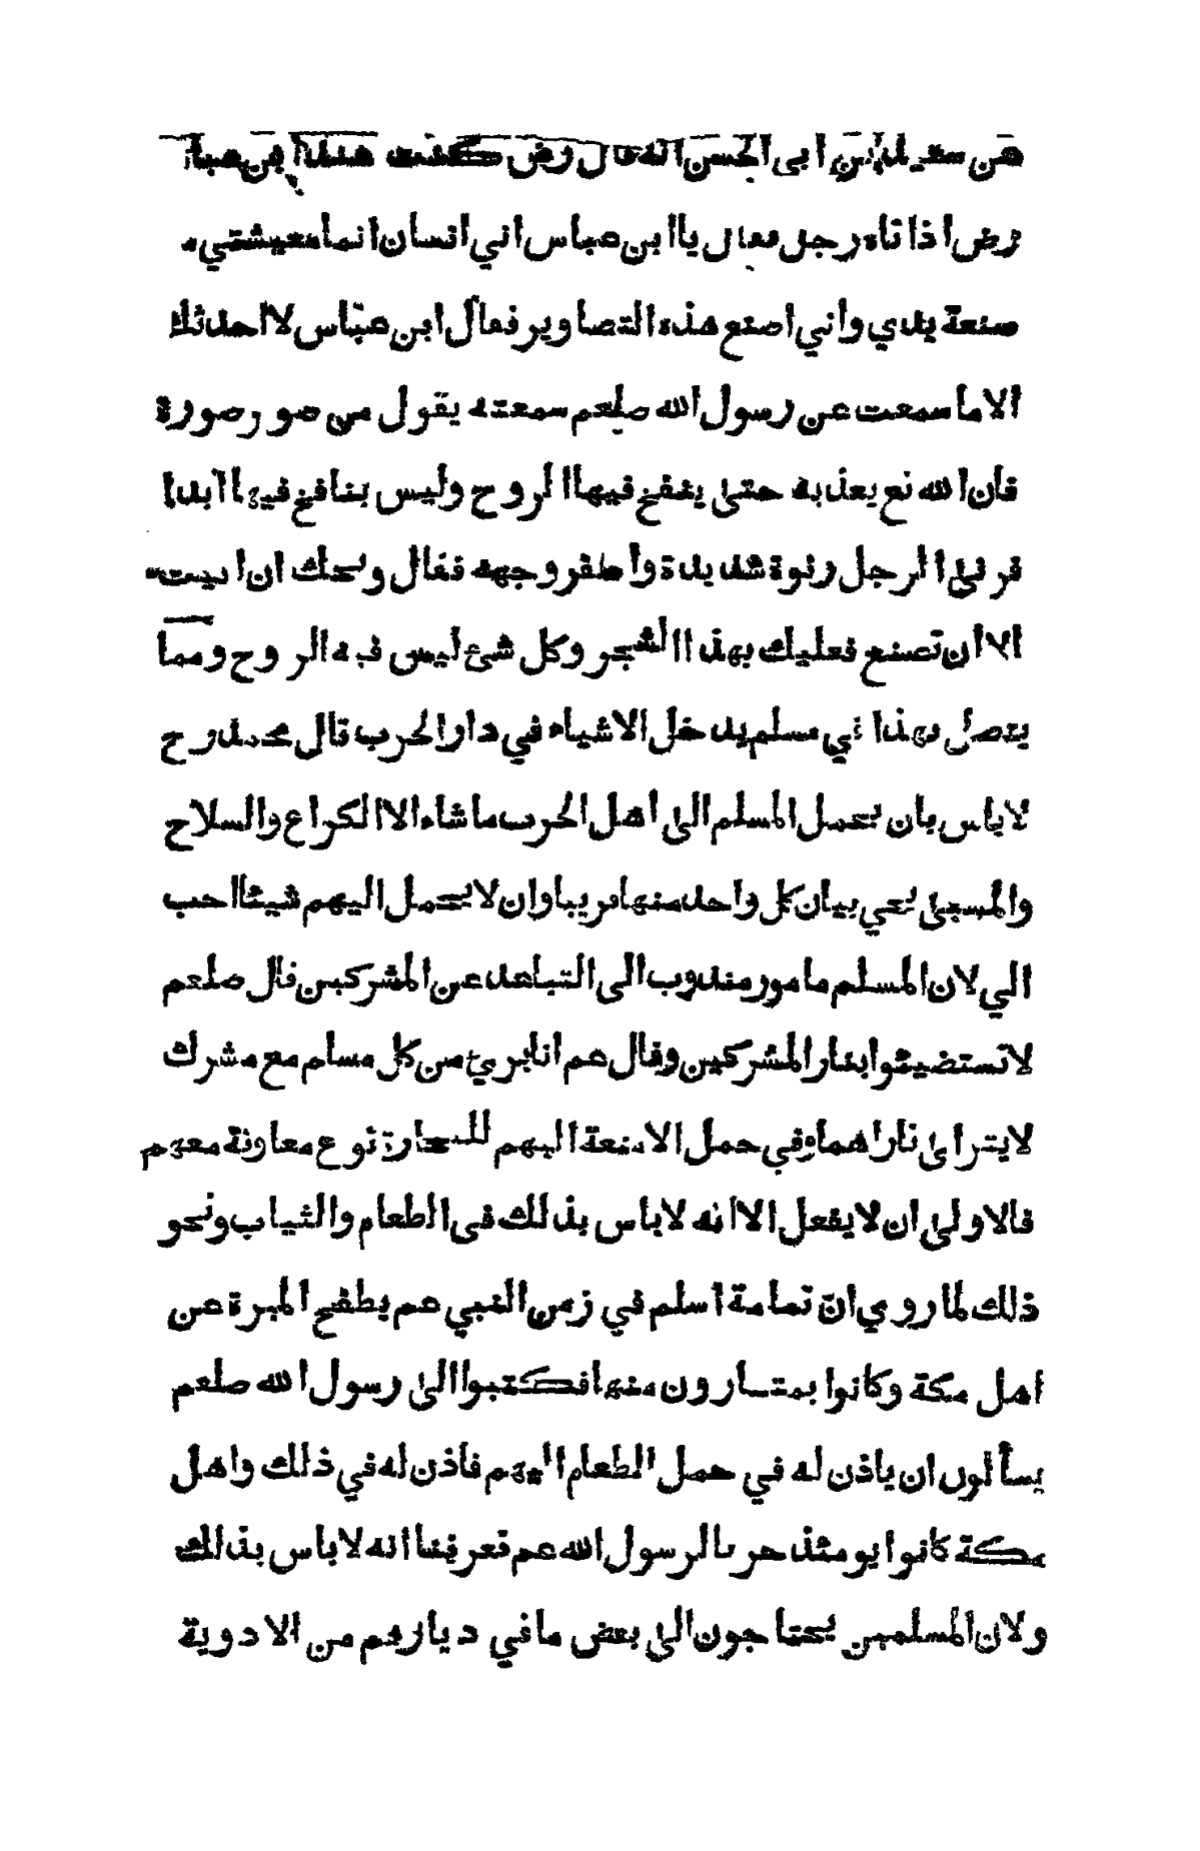 عن سعيد بن ابى الحسن انه قال رض كنت عند ابن عباس
رض اذا تاه رجل فقال يا ابن عباس اني انسان انما معيشتي من
صنعة يدي واني اصنع هذه التصاوير فقال ابن عباس لا احدثك
الا ما سمعت عن رسول الله صلعم سمعته يقول من صور صورة
فان الله تع يعذبه حتى ينفخ فيها الروح وليس بنافخ فيها ابدا
فربى الرجل ربوة شديدة واصفر وجهه فقال ويحك ان ابيت
الا ان تصنع فعليك بهذا الشجر وكل شئ ليس فيه الروح ومما
يتصل بهذا في مسلم يدخل الاشياء في دار الحرب قال محمد رح
لا باس بان يحمل المسلم الى اهل الحرب ما شاء الا الكراع والسلاح
والسبى يجي بيان كل واحد منها قريبا وان لا يحمل اليهم شيئا احب
الي لان المسلم مامور مندوب الى التباعد عن المشركين قال صلعم
لا تستضيئوا بنار المشركين وقال عم انا برئ من كل مسلم مع مشرك
لا يترائ ناراهما وفي حمل الامتعة اليهم للتجارة نوع معاونة معهم
فالاولى ان لا يفعل الا انه لا باس بذلك في الطعام والثياب ونحو
ذلك لما روي ان ثمامة اسلم في زمن النبي عم يطفح المبرة عن
اهل مكة وكانوا يمتسارون منها فكتبوا الى رسول الله صلعم
يسألون ان ياذن له في حمل الطعام اليهم فاذن له في ذلك واهل
مكة كانوا يومئذ حربا لرسول الله عم فعرفنا انه لا باس بذلك
ولان المسلمين يحتاجون الى بعض ما في ديارهم من الادوية